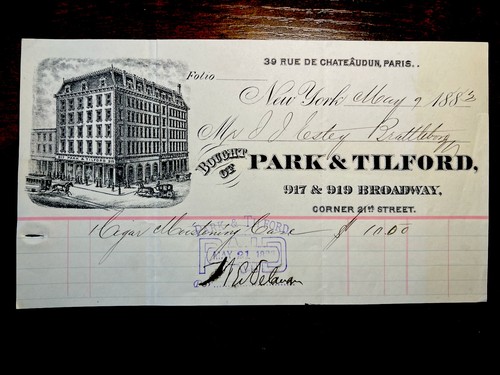 39 RUE DE CHATEÂUDUN, PARIS..
Folio
New York May 9 1883
Mr J J Estey Brattleboro
BOUGHT OF PARK & TILFORD,
917 & 919 BROADWAY,
CORNER 21st STREET.
1 Cigar Moistening Case $10.00
PARK & TILFORD
PAID
MAY 21 1883